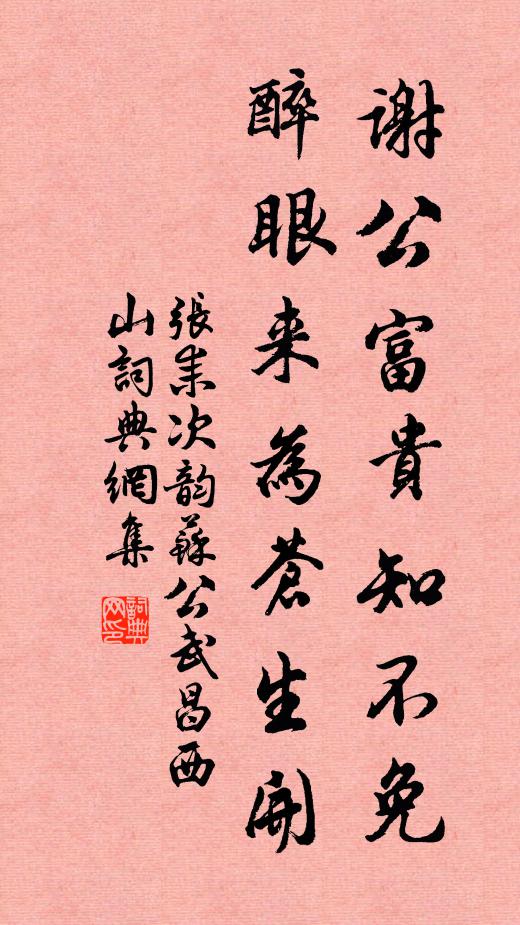 謝公富貴知不免
醉眼来為蒼生開
張耒次韵蘇公武昌西
山詞典網集
詞典網印